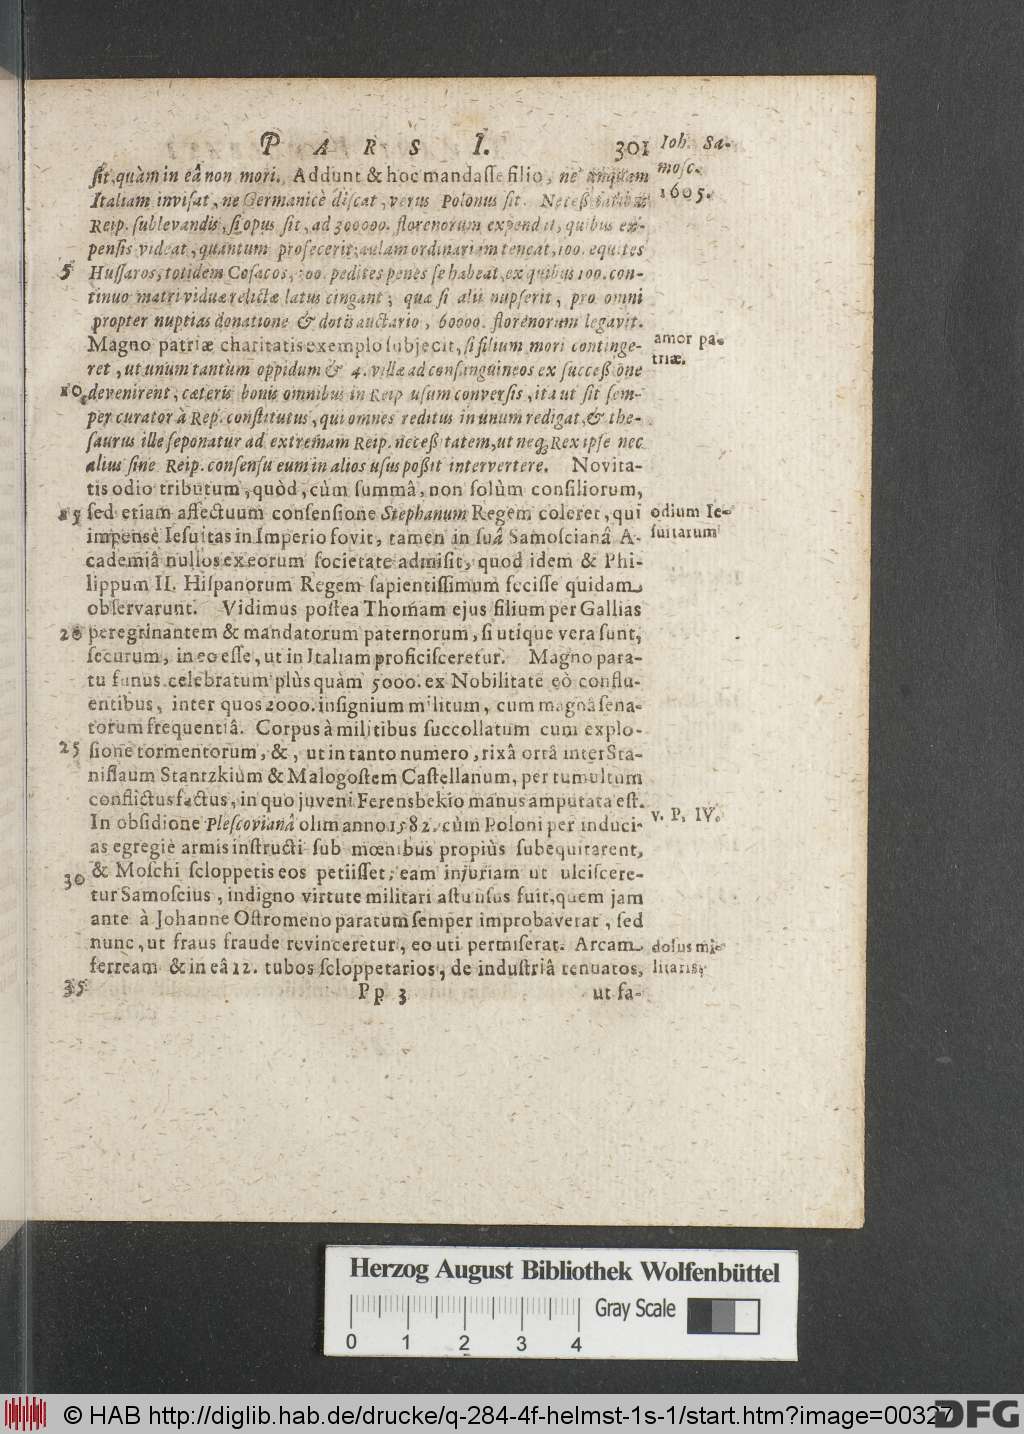 PARS I. 301 Ioh. Sa-
mosc.
1605.
ſit, quàm in eâ non mori. Addunt & hoc mandaſſe filio, ne unquam
Italiam inviſat, ne Germanicè diſcat, verus Polonus ſit. Neceßitatibus
Reip. ſublevandis, ſi opus ſit, ad 300000. florenorum expendit, quibus ex-
penſis videat, quantum profecerit; aulam ordinariam teneat, 100. equites
5 Huſſaros, totidem Coſacos, 300. pedites penes ſe habeat, ex quibus 100. con-
tinuo matri viduæ relictæ latus cingant; quæ ſi alii nupſerit, pro omni
propter nuptias donatione & dotis auctario, 60000. florenorum legavit.
Magno patriæ charitatis exemplo ſubjecit, ſi filium mori continge-
amor pa-
triæ.
ret, ut unum tantùm oppidum & 4. villæ ad conſanguineos ex ſucceßione
10 devenirent, cæteris bonis omnibus in Reip uſum converſis, ita ut ſit ſem-
per curator à Rep. conſtitutus, qui omnes reditus in unum redigat, & the-
ſaurus ille ſeponatur ad extremam Reip. neceßitatem, ut neq; Rex ipſe nec
alius ſine Reip. conſenſu eum in alios uſus poßit intervertere. Novita-
tis odio tributum, quòd, cùm ſummâ, non ſolùm conſiliorum,
15 ſed etiam affectuum conſenſione Stephanum Regem coleret, qui
odium Ie-
ſuitarum
impensè Ieſuitas in Imperio fovit, tamen in ſuâ Samoſcianâ A-
cademiâ nullos ex eorum ſocietate admiſit, quod idem & Phi-
lippum II. Hiſpanorum Regem ſapientiſſimum feciſſe quidam
obſervarunt. Vidimus poſtea Thomam ejus filium per Gallias
20 peregrinantem & mandatorum paternorum, ſi utique vera ſunt,
ſecurum, in eo eſſe, ut in Italiam proficiſceretur. Magno para-
tu funus celebratum plùs quàm 5000. ex Nobilitate eò conflu-
entibus, inter quos 2000. inſignium militum, cum magnâ ſena-
torum frequentiâ. Corpus à militibus ſuccollatum cum explo-
25 ſione tormentorum, &, ut in tanto numero, rixâ ortâ inter Sta-
niſlaum Stantzkium & Malogoſtem Caſtellanum, per tumultum
conflictus factus, in quo juveni Ferensbekio manus amputata eſt.
In obſidione Pleſcovianâ olim anno 1582. cùm Poloni per induci-
v. P. IV.
as egregiè armis inſtructi ſub mœnibus propiùs ſubequitarent,
30 & Moſchi ſcloppetis eos petiiſſet; eam injuriam ut ulciſcere-
tur Samoſcius, indigno virtute militari aſtu uſus fuit, quem jam
ante à Johanne Oſtromeno paratum ſemper improbaverat, ſed
nunc, ut fraus fraude revinceretur, eo uti permiſerat. Arcam
dolus mi-
litaris;
ferream & in eâ 12. tubos ſcloppetarios, de induſtriâ tenuatos,
35 Pp 3 ut fa-
Herzog August Bibliothek Wolfenbüttel
0 1 2 3 4 Gray Scale
© HAB http://diglib.hab.de/drucke/q-284-4f-helmst-1s-1/start.htm?image=00327
DFG